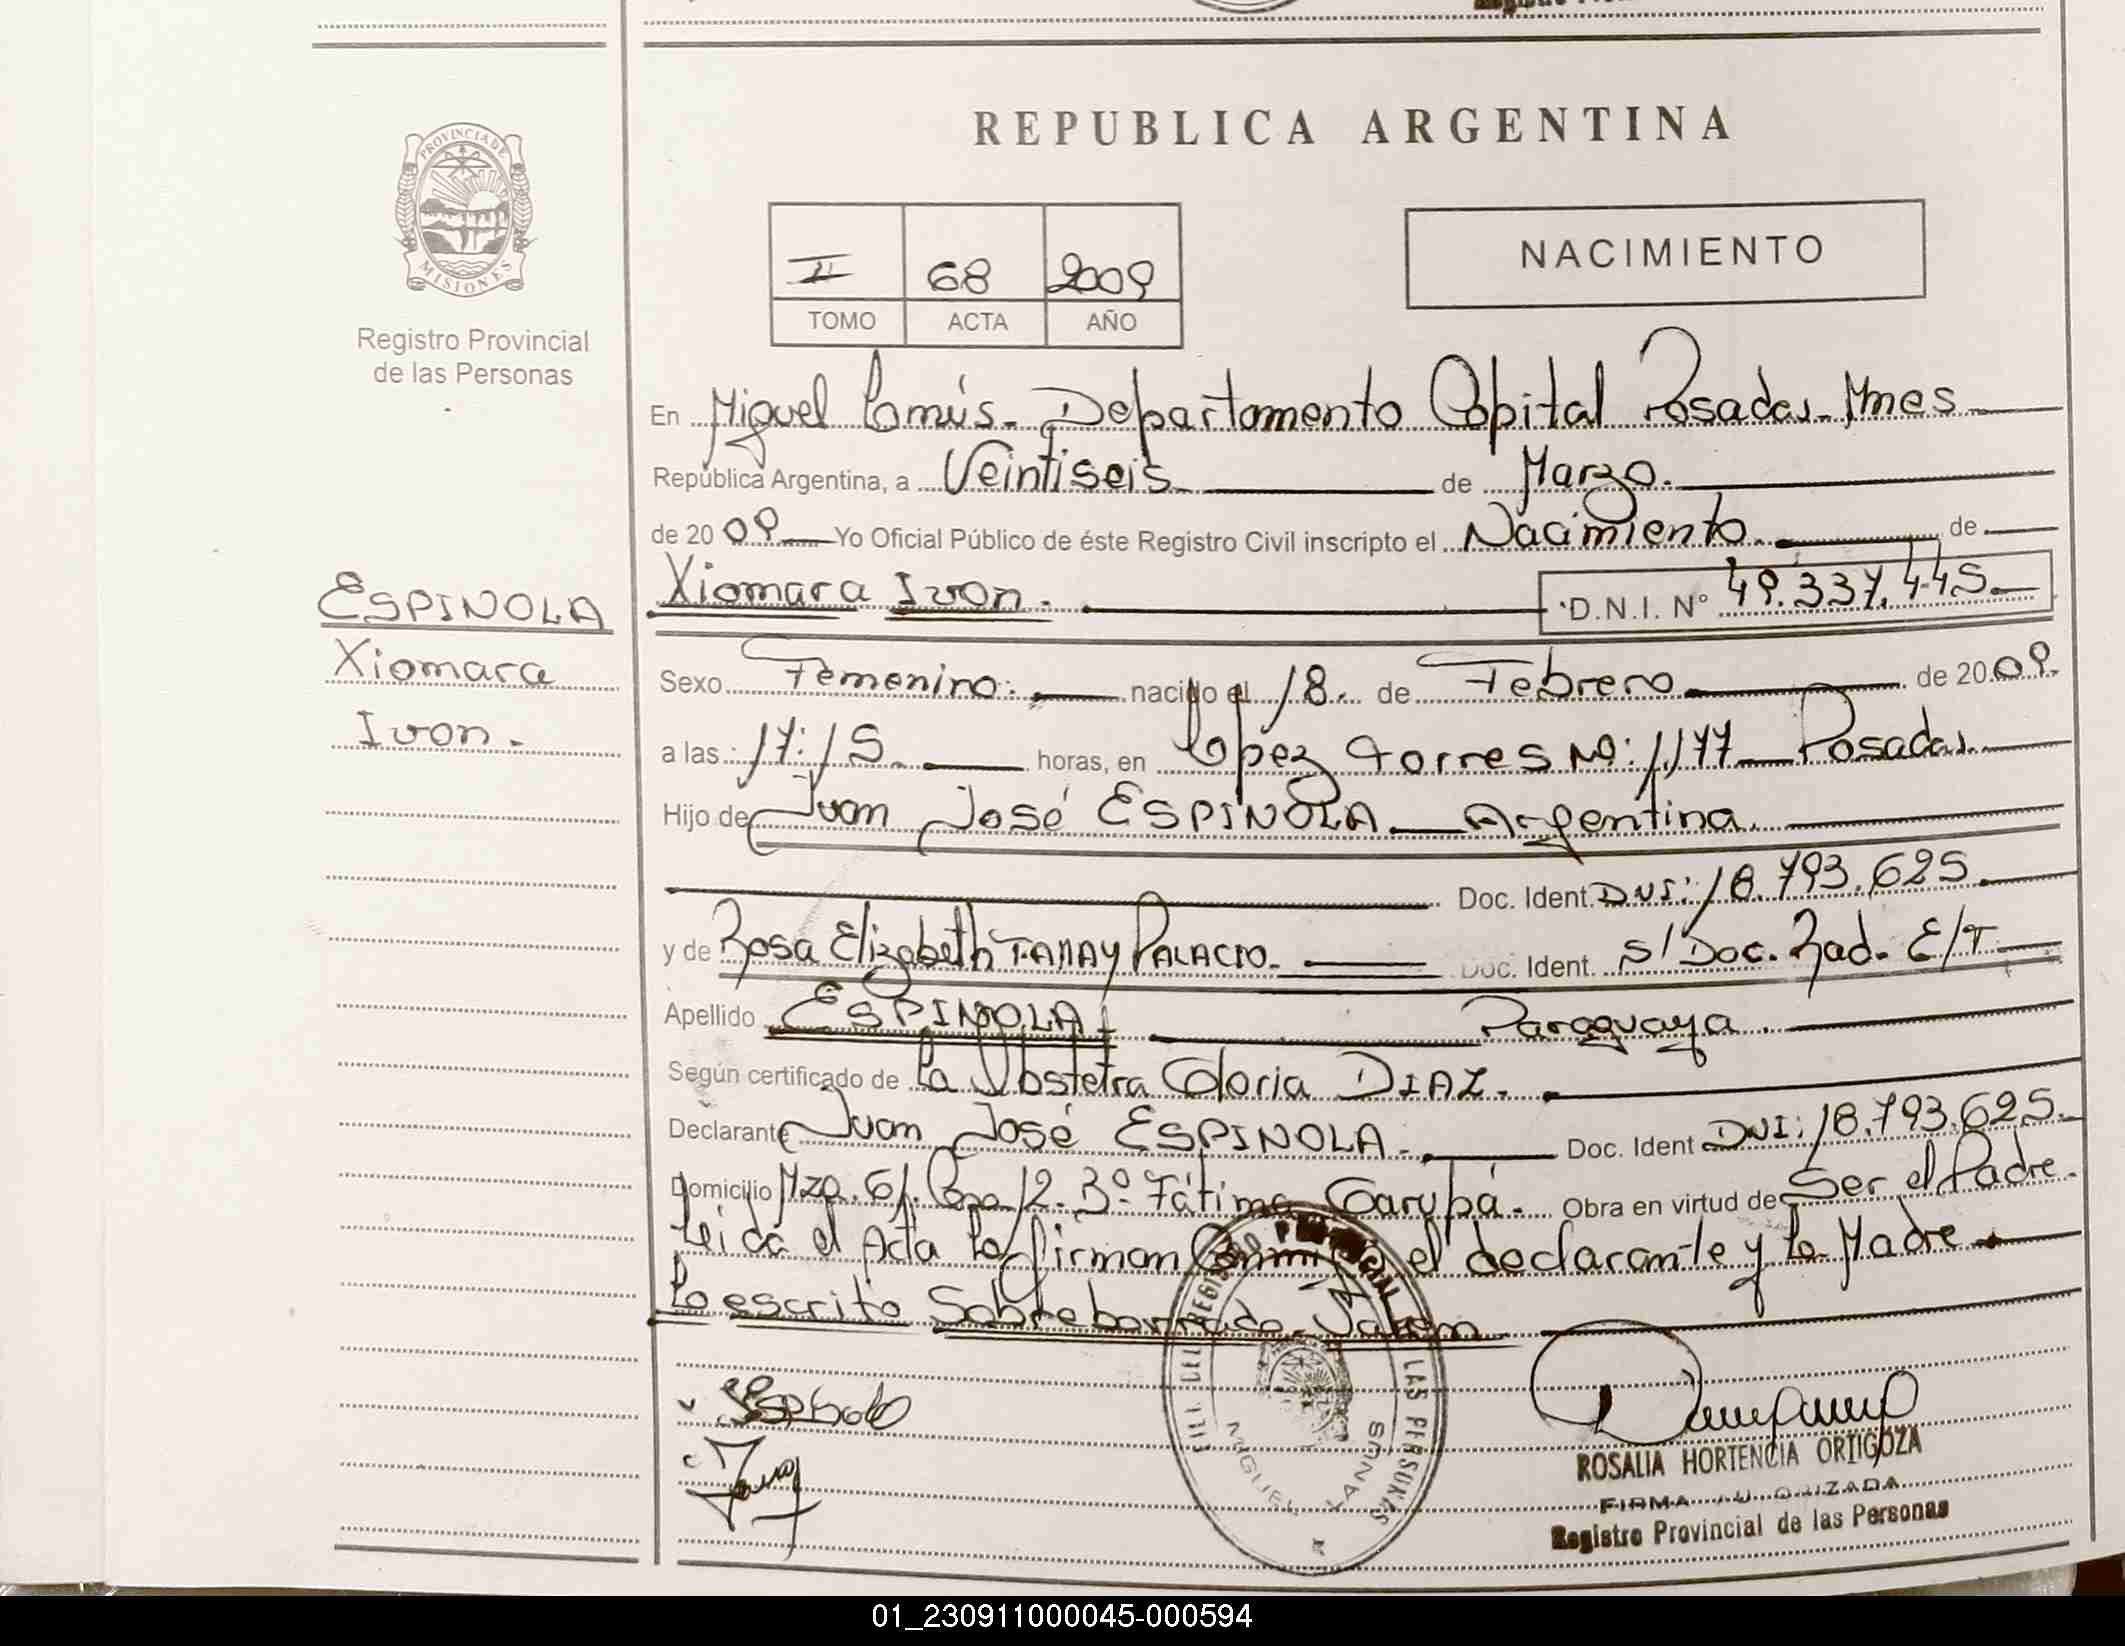 REPUBLICA ARGENTINA
PROVINCIA DE
MISIONES
Registro Provincial
de las Personas
II 68 2009
TOMO ACTA AÑO
NACIMIENTO
En Miguel Lanús. Departamento Capital Posadas Mnes
República Argentina, a Veintiseis de Marzo.
de 2009 Yo Oficial Público de éste Registro Civil inscripto el Nacimiento de
Xiomara Ivon. D.N.I. Nº 49.337.445.
ESPINOLA
Xiomara
Ivon.
Sexo Femenino. nacido el 18. de Febrero de 2009.
a las: 17:15 horas, en López Torres Nº: 1.177 Posadas.
Hijo de Juan José ESPINOLA Argentina.
Doc. Ident. DNI: 18.793.625.
y de Rosa Elizabeth PALACIO. Doc. Ident. S/ Doc. Rad. E/T
Apellido ESPINOLA Paraguaya.
Según certificado de la Obstetra Gloria DIAZ.
Declarante Juan José ESPINOLA. Doc. Ident DNI: 18.793.625.
Domicilio Mza. 61. Casa 12. Bº Fátima Garupá. Obra en virtud de Ser el Padre.
Leida el Acta la firman Conmigo el declarante y la Madre
Lo escrito Sobreborrado.
REGISTRO PROVINCIAL DE LAS PERSONAS
MIGUEL LANUS
ROSALIA HORTENCIA ORTIGOZA
FIRMA AUTORIZADA
Registro Provincial de las Personas
01_230911000045-000594